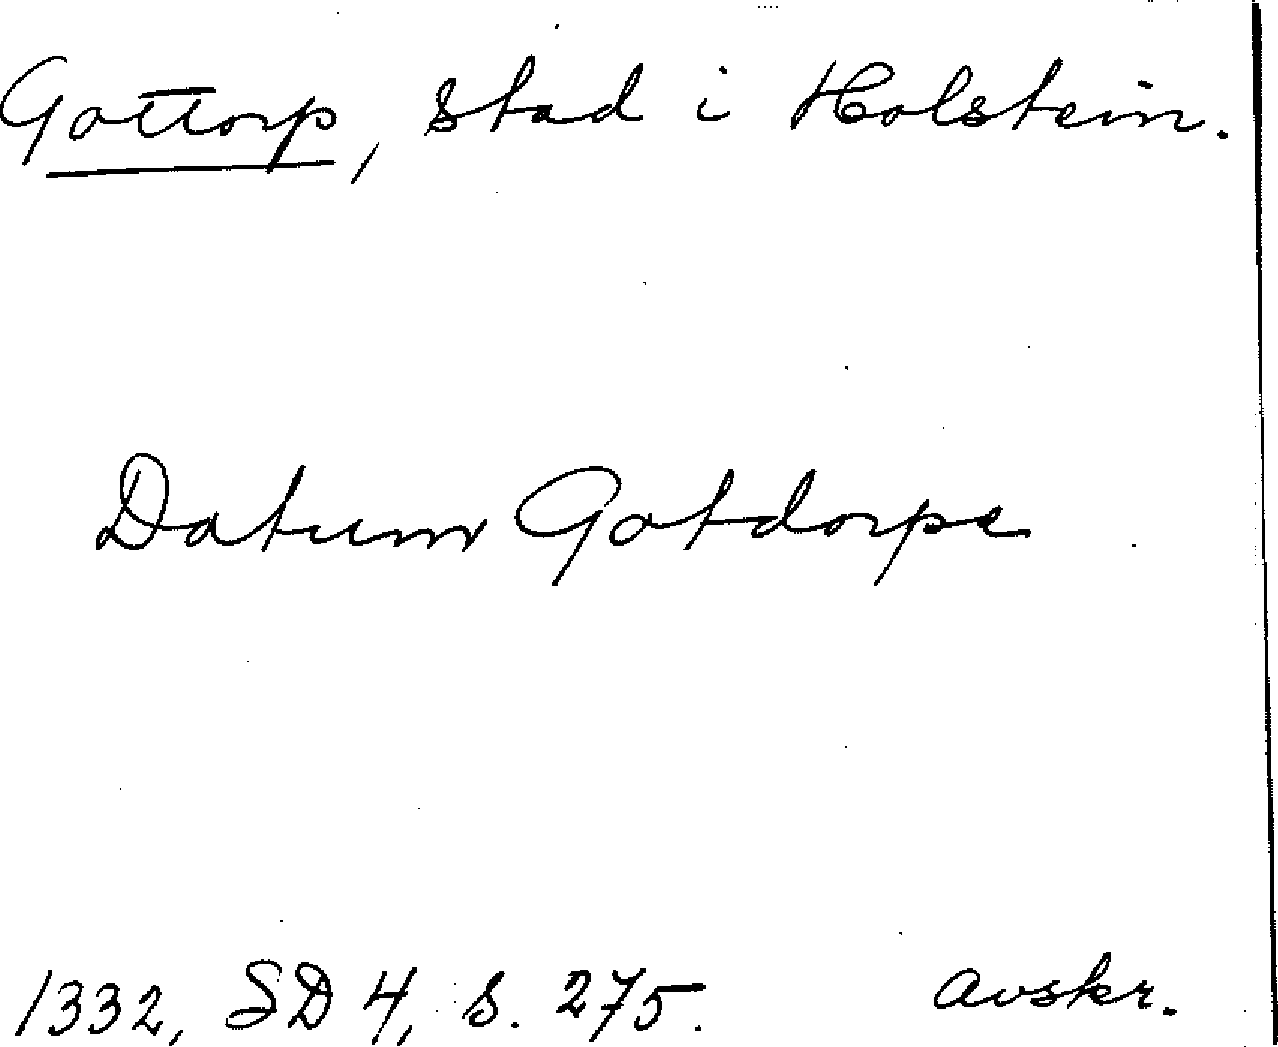 Gottorp, stad i Holstein.
Datum Gotdorpe
1332, SD 4, s. 275. avskr.